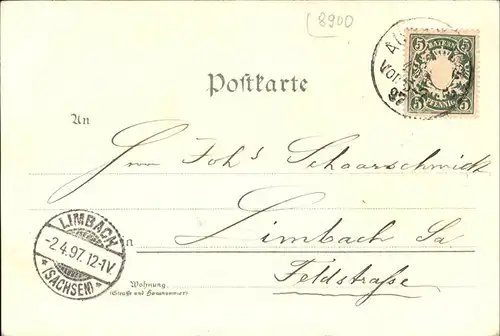 [8900]
BAYERN
5 5
PFENNIG
5 5
Postkarte
An
Herrn Joh's Schaarschmidt
in Limbach Sa
Feldstraße
LIMBACH
-2.4.97.12-1V.
* (SACHSEN) *
Wohnung
(Straße und Hausnummer)